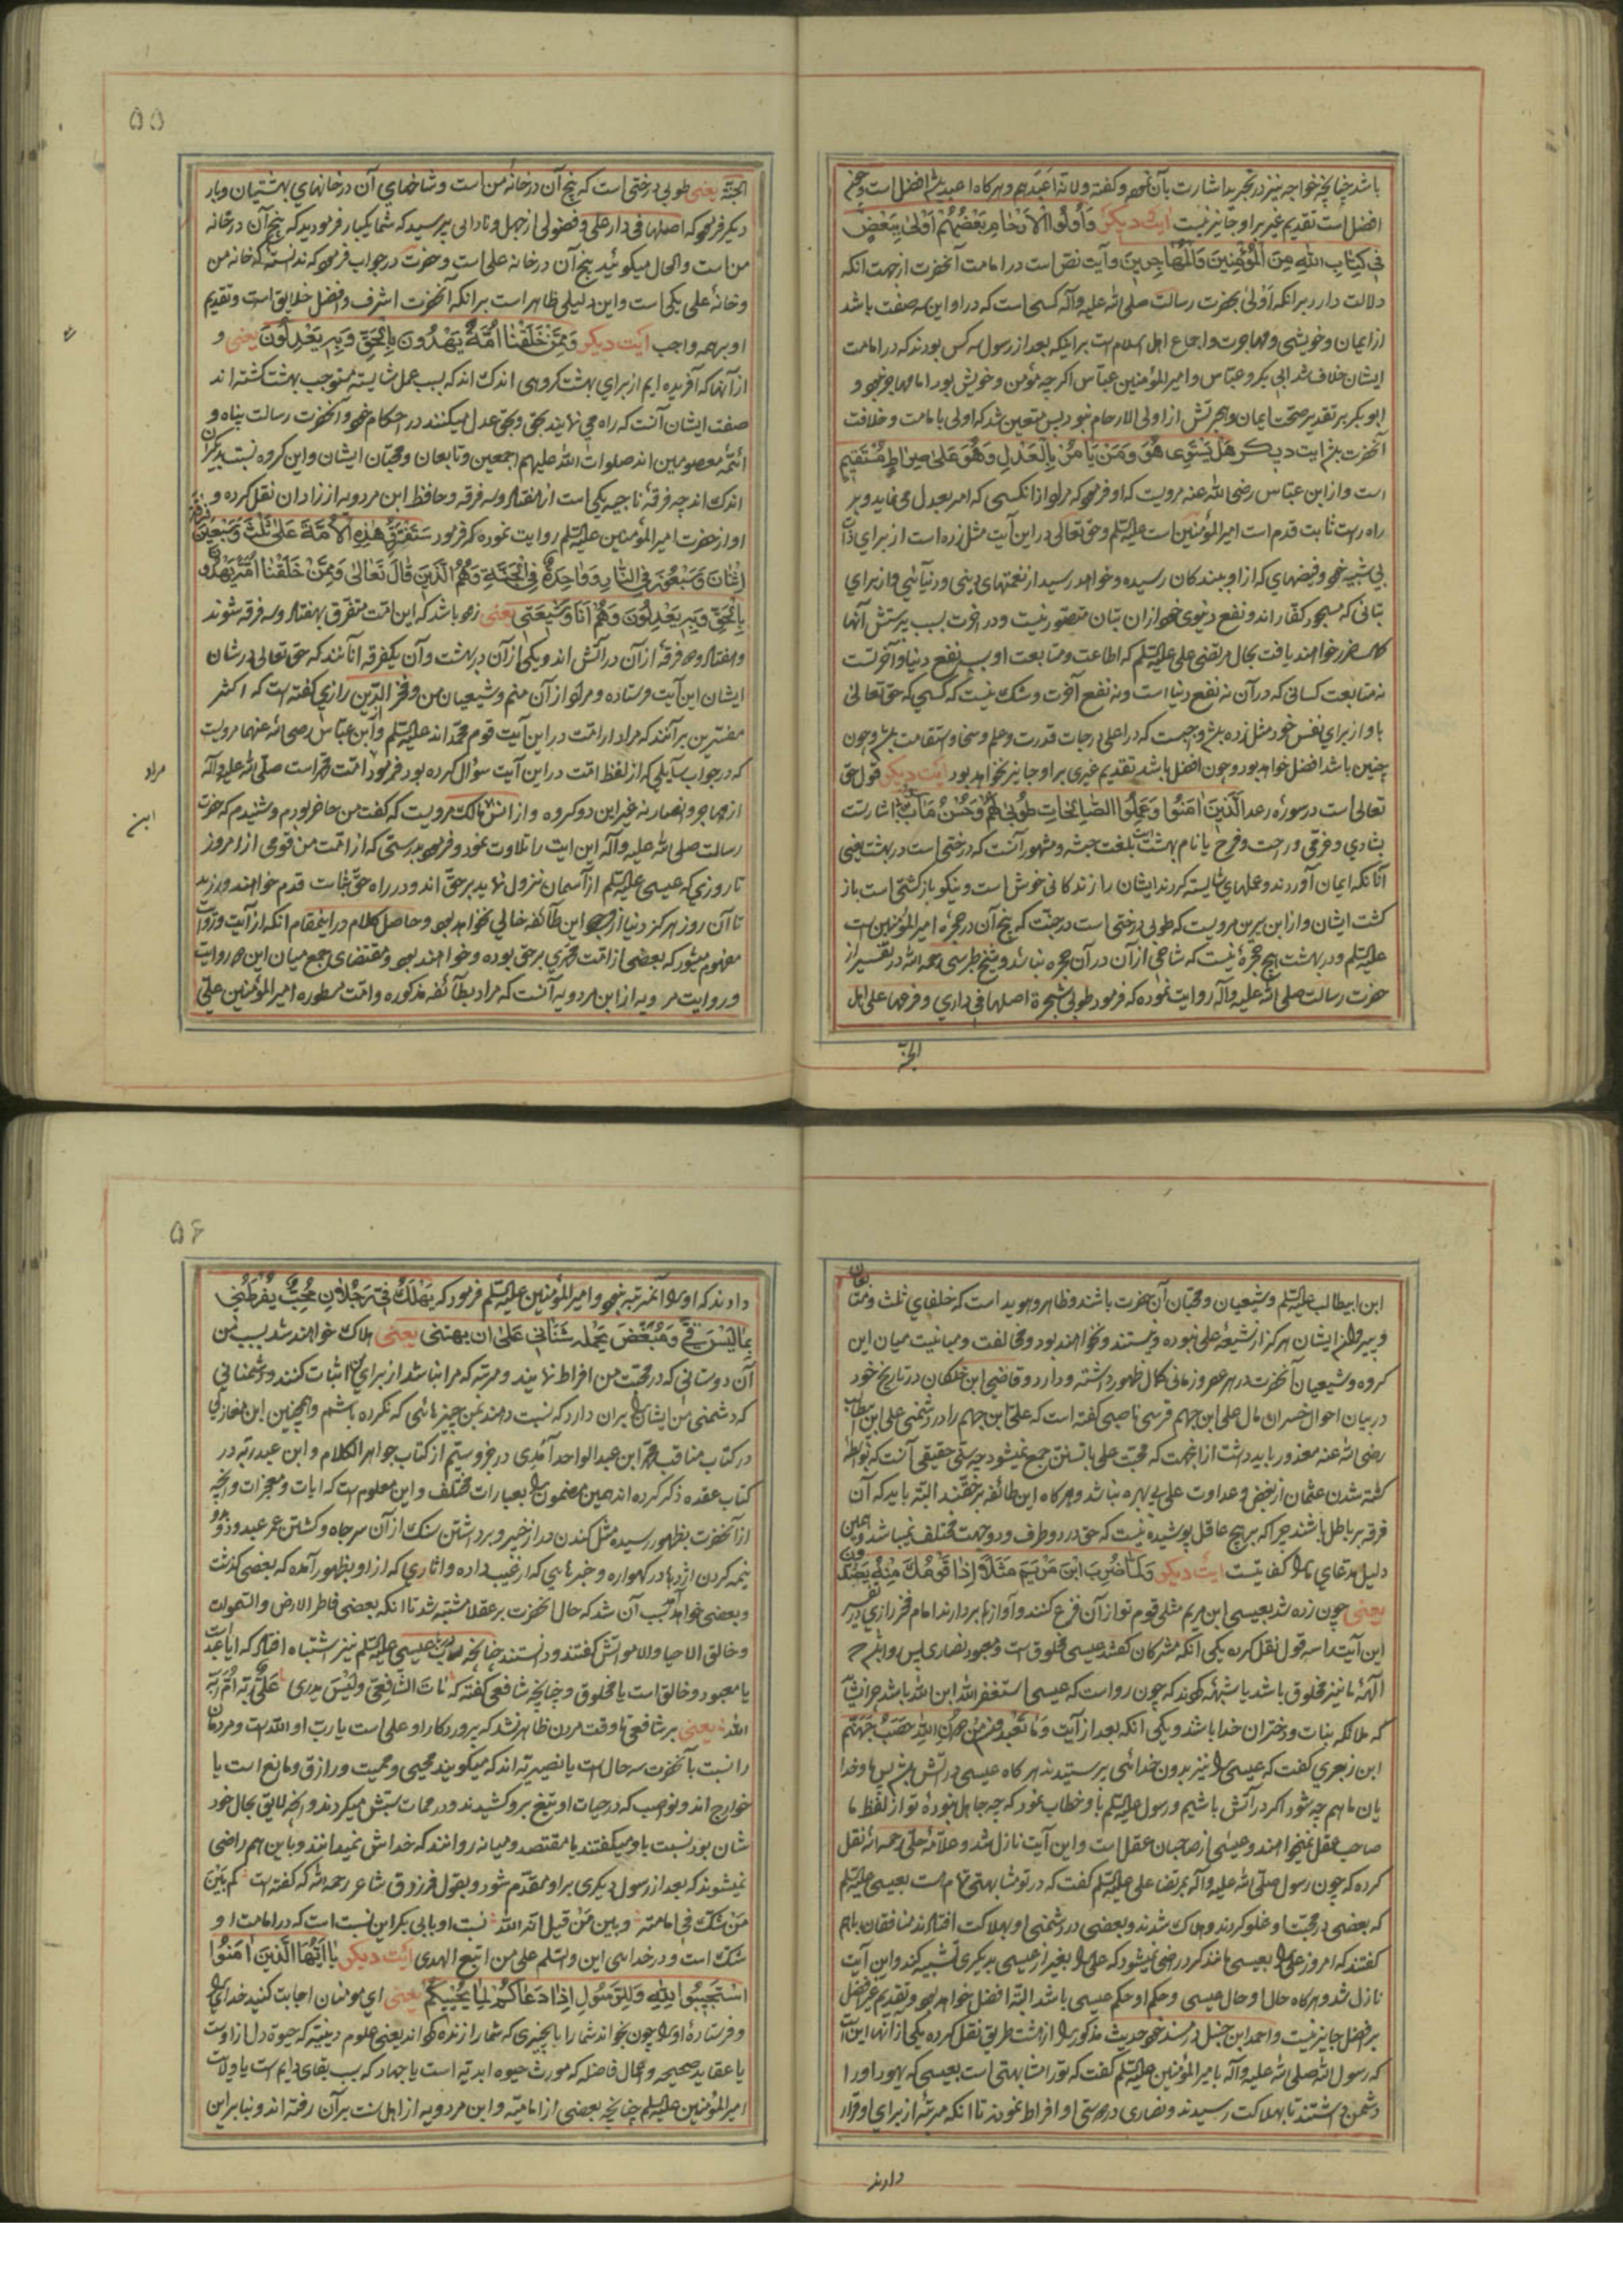 باشد چنانچه خواجه نیز در تجرید اشارت بآن نموده و کفته ولانه اعبدهم و هرکاه اعبد باشد افضل است و چون
افضل است تقدیم غیر بر او جایز نیست ایت دیکر وَاُولُوا الْاَرْحَامِ بَعْضُهُمْ اَوْلٰی بِبَعْضٍ
فِی کِتَابِ اللهِ مِنَ الْمُؤْمِنِینَ وَالْمُهَاجِرِینَ وآیت نص است در امامت آنحضرت از جهت آنکه
دلالت دارد برانکه اَوْلی بحضرت رسالت صلی الله علیه وآله کسی است که در او این سه صفت باشد
از ایمان و خویشی و مهاجرت واجماع اهل اسلام است بر اینکه بعد از رسول سه کس بودند که در امامت
ایشان خلاف شد ابی بکر و عباس و امیر المؤمنین عباس اکرچه مؤمن و خویش بود اما مهاجر نبود و
ابو بکر بر تقدیر صحت ایمان و هجرتش از اولی الارحام نبود پس متعین شد که اولی بامامت و خلافت
آنحضرت باشد ایت دیکر هَلْ یَسْتَوِی هُوَ وَمَنْ یَأمُرُ بِالْعَدْلِ وَهُوَ عَلیٰ صِرَاطٍ مُسْتَقِیمٍ
است و از ابن عباس رضی الله عنه مرویست که او فرموده که مراد از انکسی که امر بعدل می نماید و بر
راه راست ثابت قدم است امیر المؤمنین است علیه السلم و حق تعالی در این آیت مثل زده است از برای ذات
بی شبیه خود و فیضهای که از او ببندکان رسیده و خواهد رسید از نعمتهای دینی و دنیائی و از برای
بتانی که مسجود کفار اند و نفع دنیوی خود ازان بتان متصور نیست و در اخرت بسبب پرستش آنها
ضرر خواهند یافت بحال مرتضی علی علیه السلم که اطاعت و متابعت او سبب نفع دنیا و آخرتست
نه متابعت کسانی که در آن نه نفع دنیا است و نه نفع آخرت و شک نیست که کسی که حق تعالی
باو از برای نفس خود مثل زده باشد واجبست که در اعلی درجات قدرت و علم و سخا و استقامت باشد و چون
چنین باشد افضل خواهد بود و چون افضل باشد تقدیم غیری بر او جایز نخواهد بود ایت دیکر قول حق
تعالی است در سوره رعد اَلَّذِینَ اٰمَنُوا وَعَمِلُوا الصَّالِحَاتِ طُوبٰی لَهُمْ وَحُسْنُ مَاٰبٍ اشارتست
بشادی و فرح و راحت و فرخ یا نام بهشت است بلغت حبشه و مشهور آنست که درختی است در بهشت یعنی
آنانکه ایمان آوردند و عملهای شایسته کردند ایشان را زندکانی خوش است و نیکو بازکشتی است باز
کشت ایشان و از ابن سیرین مرویست که طوبی درختی است در جنت که بیخ آن در حجره امیر المؤمنین است
علیه السلم و در بهشت هیچ حجره نیست که شاخی از آن در آن حجره نباشد و شیخ طبرسی رحمه الله در تفسیر از
حضرت رسالت صلی الله علیه وآله روایت نموده که فرمود طوبی شجرة اصلها فی داری و فرعها علی اهل
الجنة
۵۵
الجنة یعنی طوبی درختی است که بیخ آن در خانه من است و شاخهای آن در خانهای بهشتیان و بار
دیکر فرمود که اصلها فی دار علی و فضولی از جهل و نادانی پرسید که شما یکبار فرمودید که بیخ آن در خانه
من است و الحال میکوئید بیخ آن در خانه علی است و حضرت در جواب فرمود که ندانسته که خانه من
و خانهٔ علی یکی است و این دلیلی ظاهر است برانکه آنحضرت اشرف و افضل خلایق است و تقدیم
او بر همه واجب ایت دیکر وَمِمَّنْ خَلَقْنَا اُمَّةٌ یَهْدُونَ بِالْحَقِّ وَبِهِ یَعْدِلُونَ یعنی و
از آنها که آفریده ایم از برای بهشت کروهی اندک اند که بسبب عمل شایسته مستوجب بهشت کشته اند
صفت ایشان آنست که راه می نمایند بحق و بحق عدل میکنند در احکام خود و آنحضرت رسالت پناه و
ائمّه معصومین اند صلوات الله علیهم اجمعین و تابعان و محبّان ایشان و این کروه نسبت بدیکران
اندک اند چه فرقهٔ ناجیه یکی است از هفتاد و سه فرقه و حافظ ابن مردویه از زادان نقل کرده و
او از حضرت امیر المؤمنین علیه السلم روایت نموده که فرمود سَتَفْتَرِقُ هٰذِهِ الْاُمَّةُ عَلیٰ ثَلٰثَ وَسَبْعِینَ فرقة
اِثْنَانِ وَسَبْعُونَ فِی النَّارِ وَوَاحِدَةٌ فِی الْجَنَّةِ وَهُمُ الَّذِینَ قَالَ تَعَالیٰ وَمِمَّنْ خَلَقْنَا اُمَّةٌ یَهْدُونَ
بِالْحَقِّ وَبِهِ یَعْدِلُونَ وَهُمْ اَنَا وَشِیعَتِی یعنی زود باشد که این امّت متفرّق بهفتاد و سه فرقه شوند
و هفتاد و دو فرقه از آن در آتش اند و یکی از آن در بهشت و آن یکفرقه آنانند که حق تعالی در شان
ایشان این آیت فرستاده و مراد از آن منم و شیعیان من و فخر الدین رازی کفته است که اکثر
مفسّرین برآنند که مراد از امّت در این آیت قوم محمّد اند علیه السلم وابن عبّاس رضی الله عنهما مرویست
که در جواب سایلی که از لفظ امّت در این آیت سؤال کرده بود فرمود امّت محمّد است صلّی الله علیه وآله
مراد
از مهاجر و انصار نه غیر این دو کروه و از انس مالک مرویست که کفت من حاضر بودم و شنیدم که حضرت
ابن
رسالت صلی الله علیه وآله این ایت را تلاوت نمود و فرمود بدرستی که از امّت من قومی از امروز
تا روزی که عیسی علیه السلم از آسمان نزول نماید بر حق اند و در راه حق ثابت قدم خواهند ورزید
تا آن روز هرکز دنیا از وجود این طائفه خالی نخواهد بود و حاصل کلام در اینمقام انکه از آیت و روایت
مفهوم میشود که بعضی از امّت محمدی بر حق بوده و خواهند بود و مقتضای جمع میان این دو روایت
و روایت مرویه از ابن مردویه آنست که مراد بطآئفه مذکوره و امّت مسطوره امیر المؤمنین علیّ
ابن ابیطالب علیه السلم و شیعیان و محبّان آن حضرت باشند و ظاهر و هویدا است که خلفای ثلث و متابعان
و پیروان ایشان هرکز از شیعهٔ علی نبوده و نیستند و نخواهند بود و مخالفت و مباینت میان این
کروه و شیعیان آنحضرت در هر عصر و زمانی کمال ظهور داشته و دارد و قاضی ابن خلکان در تاریخ خود
در بیان احوال خسران مال علی ابن جهم قرشی ناصبی کفته است که علی ابن جهم را در دشمنی علی ابن ابیطالب
رضی الله عنه معذور باید داشت از انجهت که محبّت علی با تسنّن جمع نمیشود چه سنّی حقیقی آنست که بواسطه
کشته شدن عثمان از بغض و عداوت علی بی بهره نباشد و هرکاه این طائفه برحقّند البتّه باید که آن
فرقه بر باطل باشند چرا که بر هیچ عاقل پوشیده نیست که حق در دو طرف و دو جهت مختلف نمیباشد و همین
دلیل مدّعای ما را کفایتست ایت دیکر وَلَمَّا ضُرِبَ ابْنُ مَرْیَمَ مَثَلًا اِذَا قَوْمُكَ مِنْهُ یَصِدُّونَ
یعنی چون زده شد بعیسی ابن مریم مثلی قوم تو از آن فرع کنند و آوازها بردارند امام فخر رازی در تفسیر
این آیت سه قول نقل کرده یکی آنکه مشرکان کفتند عیسی مخلوق است و معبود نصاری پس روا باشد که
آلههٔ ما نیز مخلوق باشد یا شبههٔ کردند که چون رواست که عیسی استغفر الله ابن الله باشد چرا نشاید
که ملائکه بنات و دختران خدا باشد و یکی آنکه بعد از آیت وَمَا تَعْبُدُونَ مِنْ دُونِ اللهِ حَصَبُ جَهَنَّمَ
ابن زبعری کفت که عیسی را نیز بدون خدائی پرستیدند هرکاه عیسی در آتش باشد پس ما و خدا
یان ما هم چه شود اکر در آتش باشیم و رسول علیه السلم باو خطاب نمود که چه جاهل بودهٔ تو از لفظ ما
صاحب عقل نمیخواهند و عیسی از صاحبان عقل است و این آیت نازل شد و علّامهٔ حلّی رحمه الله نقل
کرده که چون رسول صلّی الله علیه وآله بمرتضا علی علیه السلم کفت که در تو مشابهتی تمام است بعیسی علیه السلم
که بعضی در محبّت او غلو کردند و هلاک شدند و بعضی در دشمنی او بهلاکت افتادند منافقان باهم
کفتند که امروز علی را بعیسی مانند کرد راضی نمیشود که علی را بغیر از عیسی بدیکری تشبیه کند و این آیت
نازل شد و هرکاه حال او حال عیسی و حکم او حکم عیسی باشد البتّه افضل خواهد بود و تقدیم غیر افضل
بر افضل جایز نیست و احمد ابن حنبل در مسند خود حدیث مذکور را از هشت طریق نقل کرده یکی از آنها این است
که رسول الله صلی الله علیه وآله بامیر المؤمنین علیه السلم کفت که تورا مشابهتی است بعیسی که یهود او را
دشمن داشتند تا بهلاکت رسیدند و نصاری در دوستی او افراط نمودند تا آنکه مرتبهٔ از برای او قرار
دادند
۵۶
دادند که او را آنمرتبه نبود و امیر المؤمنین علیه السلم فرمود که یَهْلَكُ فِیَّ رَجُلَانِ مُحِبٌّ یُفْرِطُنِی
بِمَا لَیْسَ فِیَّ وَمُبْغِضٌ یَحْمِلُهُ شَنَأنِی عَلیٰ ان یبهتنی یعنی هلاک خواهند شد بسبب من
آن دوستانی که در محبّت من افراط نمایند و مرتبه که مرا نباشد از برای من اثبات کنند و دشمنانی
که دشمنی من ایشان را بران دارد که نسبت دهند بمن چیزهائی که نکرده باشم و همچنین ابن مغازلی
در کتاب مناقب و محمّد ابن عبد الواحد آمُدی در جزو سیّم از کتاب جواهر الکلام و ابن عبد ربّه در
کتاب عقد ذکر کرده اند همین مضمون را بعبارات مختلف و این معلوم است که ایات و معجزات و آنچه
از آنحضرت بظهور رسیده مثل کندن در از خیبر و برداشتن سنک از آن سر چاه و کشتن عمر عبدود و دو
نیمه کردن اژدها در کهواره و خبرهایی که از غیب داده و اثاری که از او بظهور آمده که بعضی کذشت
و بعضی خواهد آمد سبب آن شد که حال آنحضرت بر عقلا مشتبه شد تا انکه بعضی فاطر الارض و السّموات
و خالق الاحیا و الامواتش کفتند و دانستند چنانچه در باب عیسی علیه السلم نیز اشتباه افتاد که ایا عبد است
یا معبود و خالق است یا مخلوق و چنانچه شافعی کفته که مَاتَ الشَّافِعِیُّ وَلَیْسَ یدری عَلِیٌّ رَبُّهُ اَمْ رَبُّهُ
الله یعنی بر شافعی تا وقت مردن ظاهر نشد که پروردکار او علی است یا رب او الله است و مردمان
را نسبت بآنحضرت سه حال است یا نصیریّه اند که میکویند محیی و ممیت و رازق و مانع است یا
خوارج اند و نواصب که در حیات او تیغ برو کشیدند و در ممات سبّش میکردند و انچه لایق بحال خود
شان بود نسبت باو میکفتند یا مقتصد و میانه روانند که خداش نمیدانند و باین هم راضی
نمیشوند که بعد از رسول دیکری بر او مقدّم شود و بقول فرزدق شاعر رحمه الله که کفته است کَمْ بَیْنَ
مَنْ شُكَّ فی امامته وبین مَنْ قیل انّه الله نسبت او بابی بکر این نسبت است که در امامت او
شک است و در خدایی این والسّلم علی من اتبع الهدی ایت دیکر یَا اَیُّهَا الَّذِینَ اٰمَنُوا
اسْتَجِیبُوا لِلّٰهِ وَلِلرَّسُولِ اِذَا دَعَاکُمْ لِمَا یُحْیِیکُمْ یعنی ای مؤمنان اجابت کنید خدای را
و فرستادهٔ او را چون بخواند شما را بچیزی که شما را زنده کرداند یعنی علوم دینیّه که حیوة دل ازاوست
یا عقاید صحیحه و اعمال فاضله که مورث حیوه ابدیه است یا جهاد که سبب بقای دایم است یا ولایت
امیر المؤمنین علیه السلم چنانچه بعضی از امامیّه و ابن مردویه از اهل سنت برآن رفته اند و بنابراین